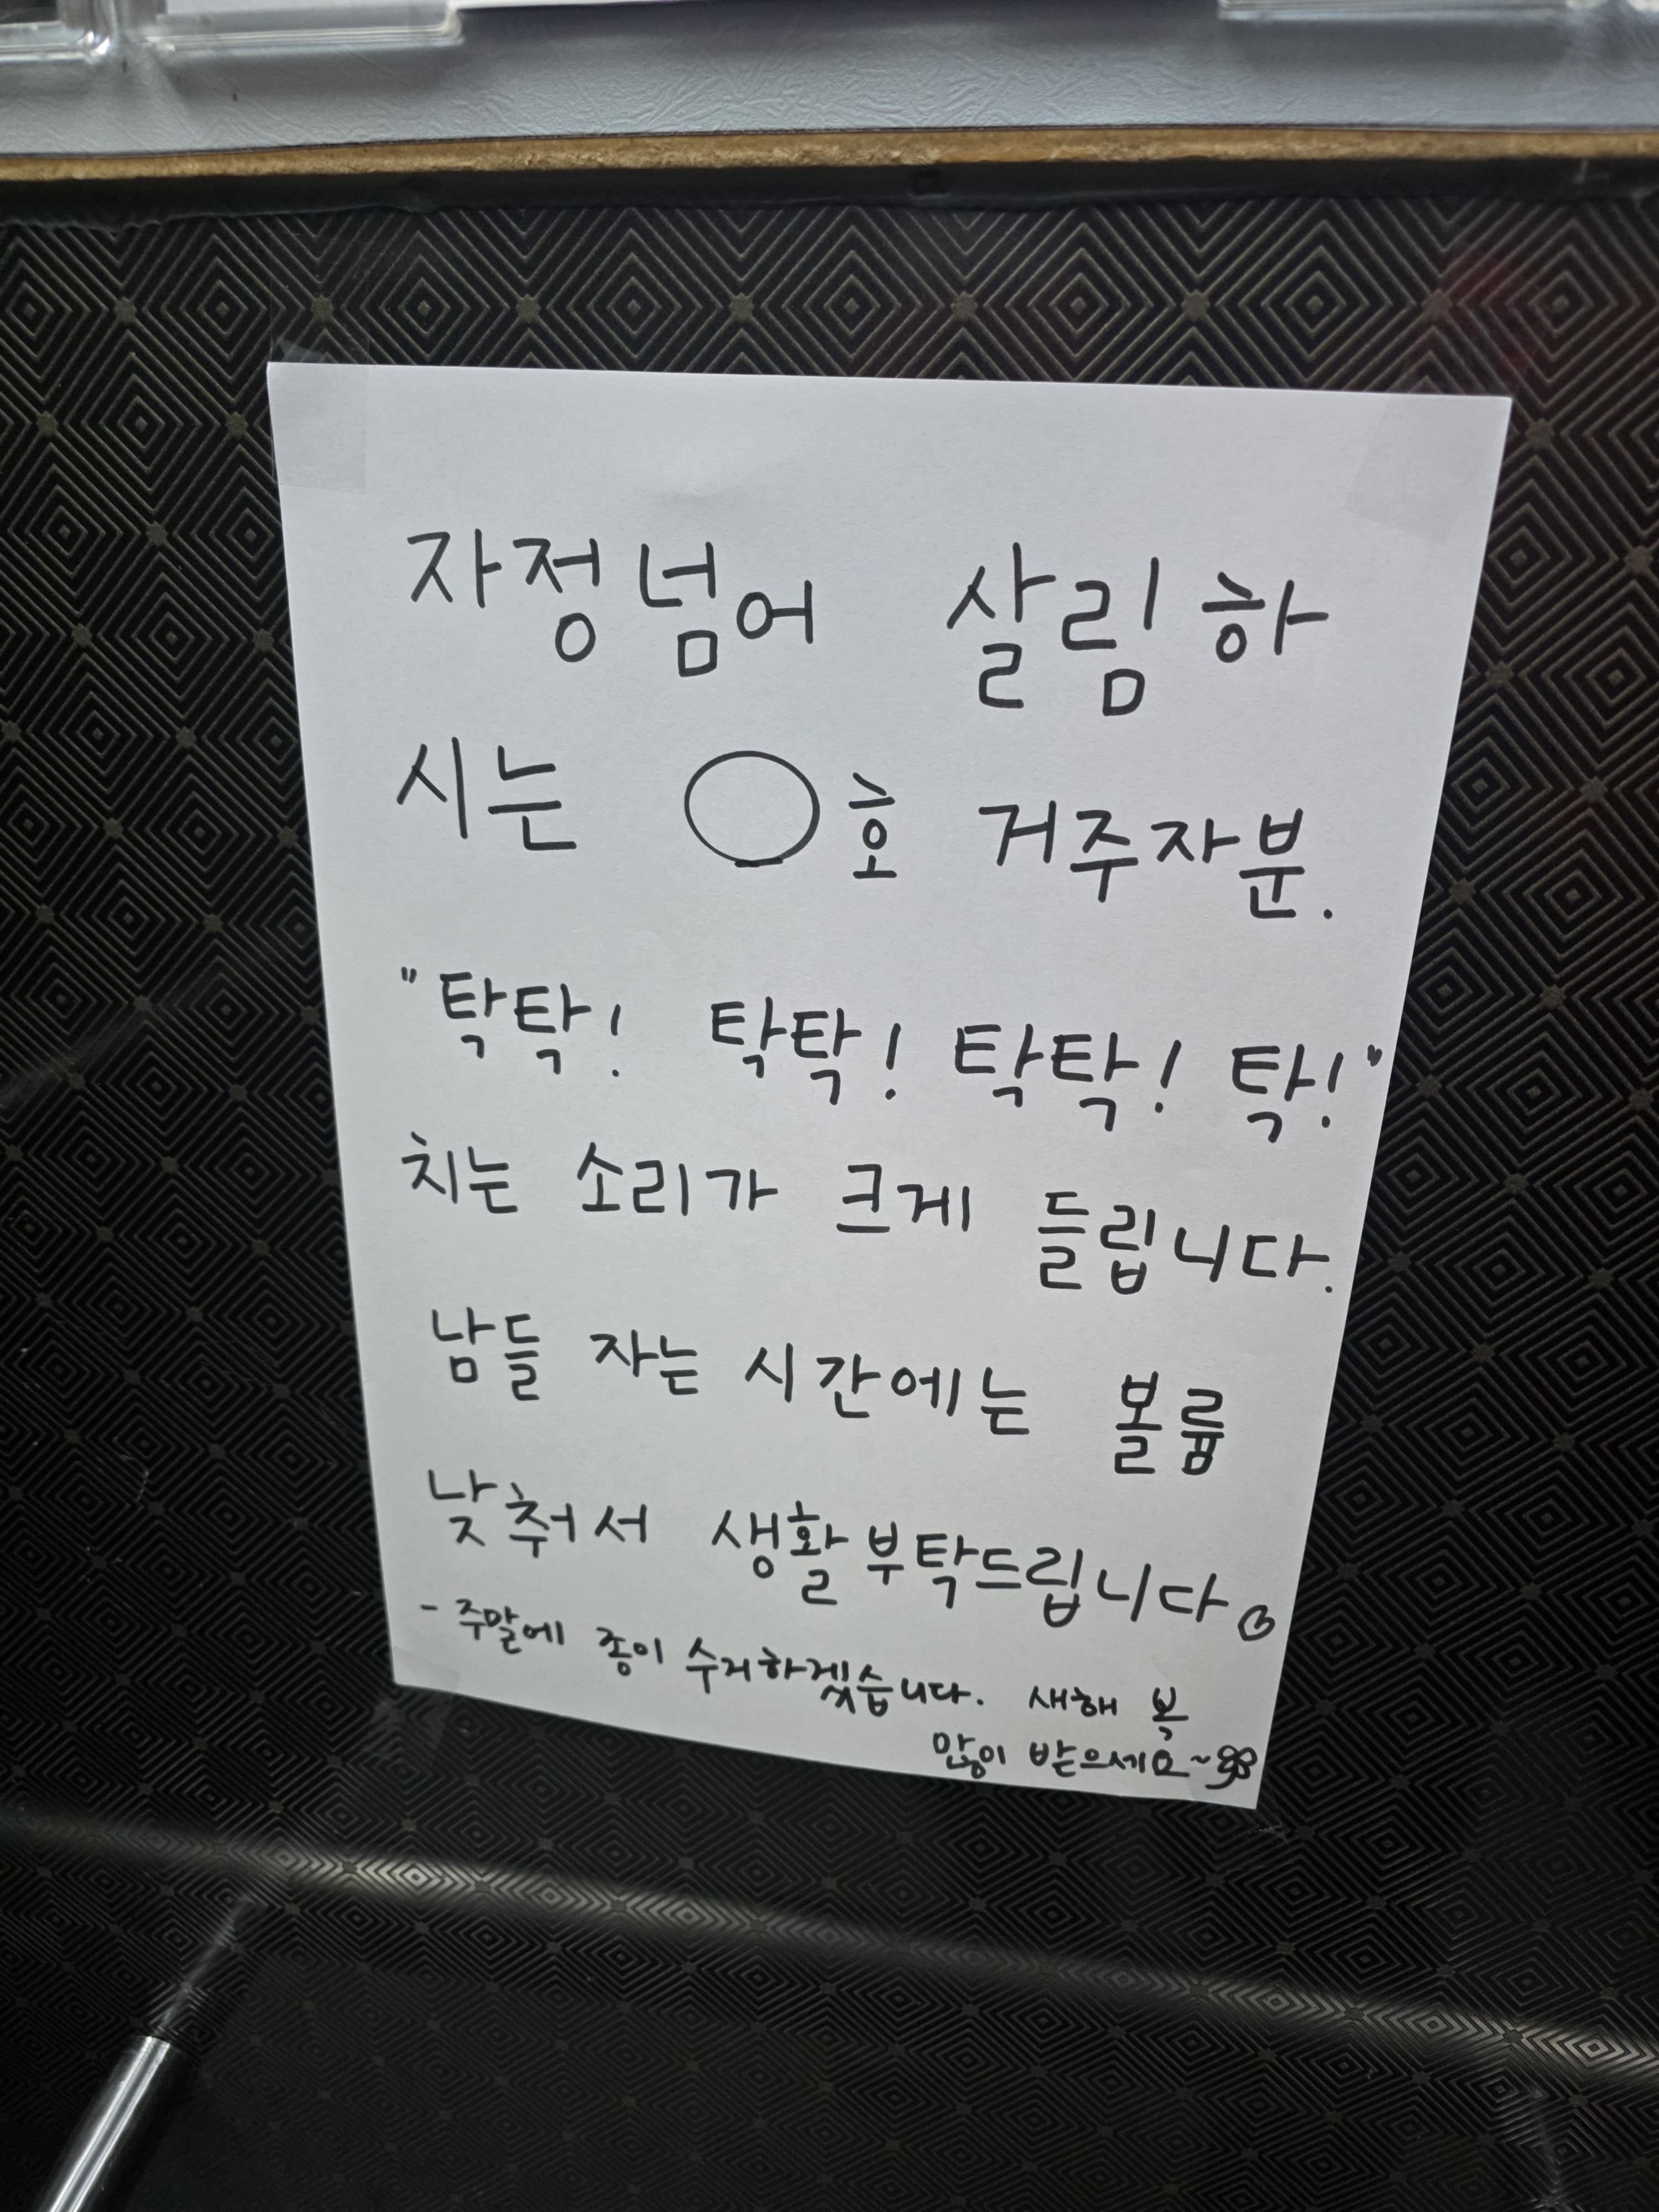 자정넘어 살림하
시는 ○호 거주자분.
"탁탁! 탁탁! 탁탁! 탁!"
치는 소리가 크게 들립니다.
남들 자는 시간에는 볼륨
낮춰서 생활부탁드립니다.
- 주말에 종이 수거하겠습니다. 새해 복
많이 받으세요~